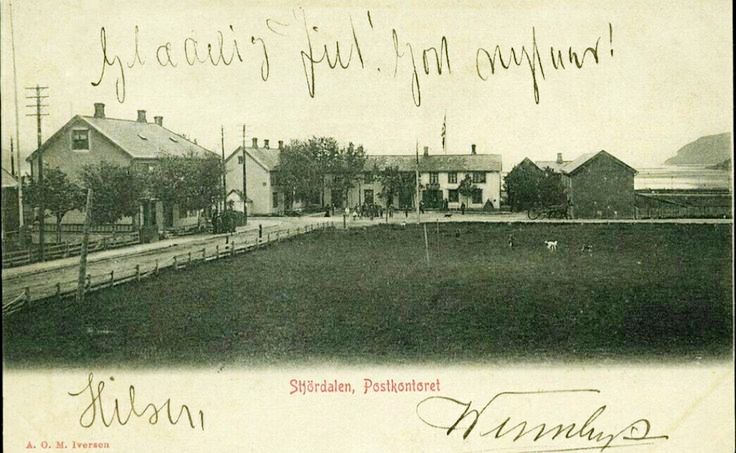 Glædelig Jul! Godt nytaar!
Stjördalen, Postkontoret
Hilsen
A. O. M. Iversen